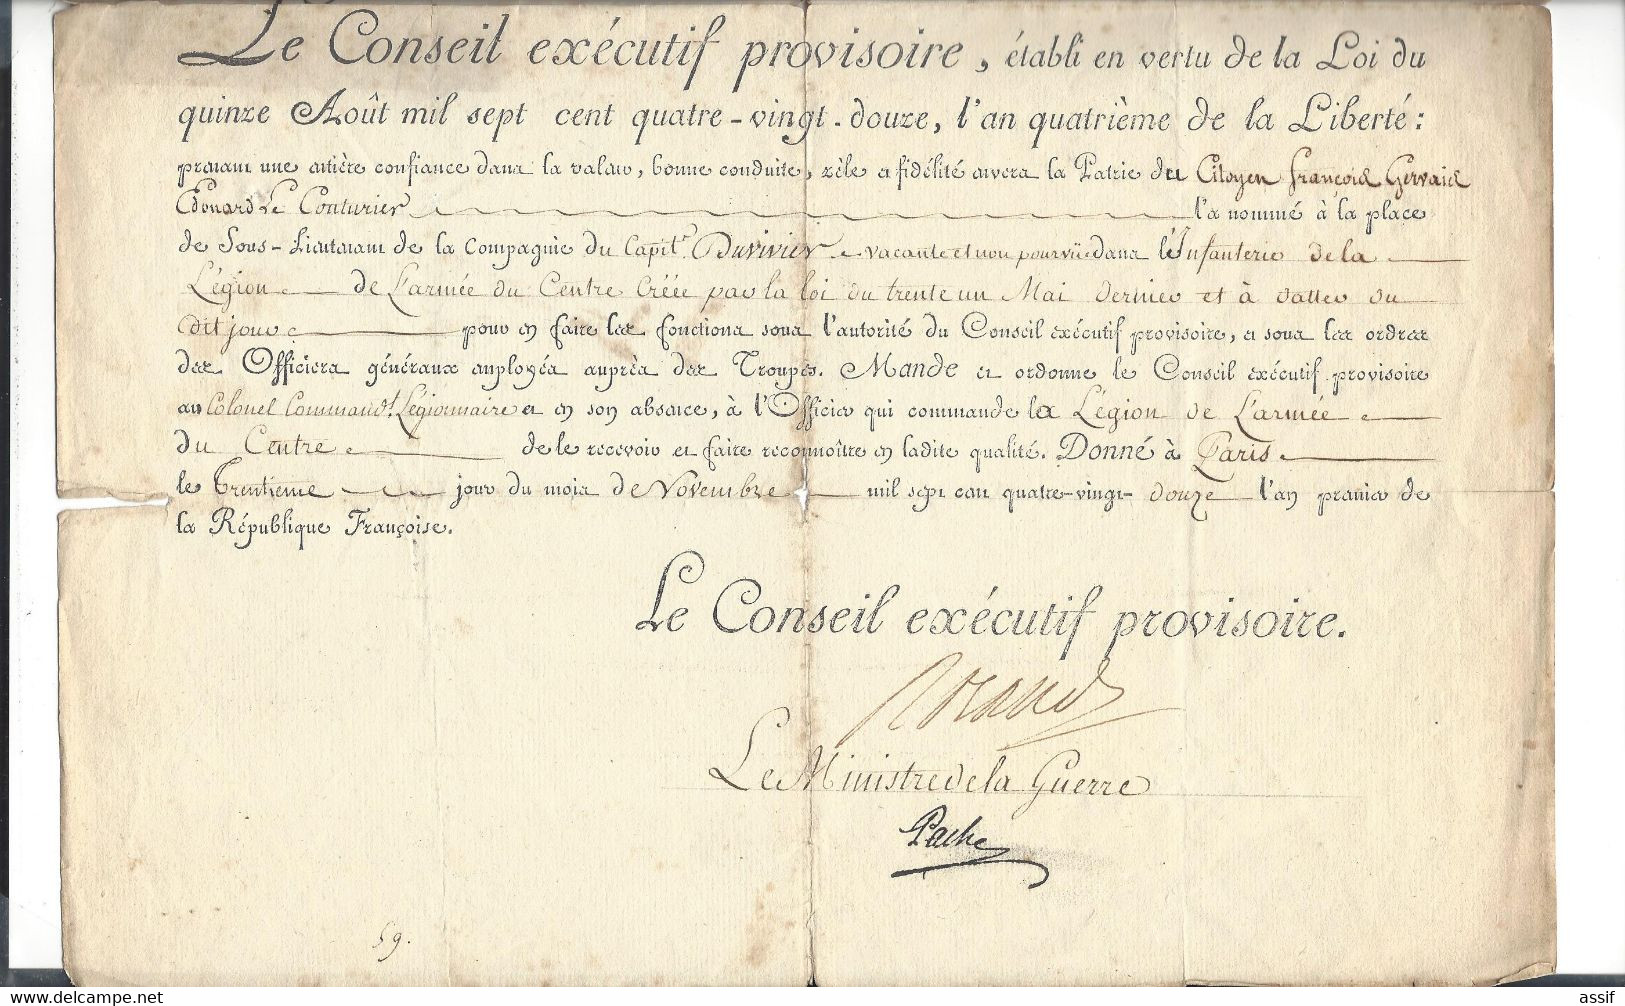 Le Conseil exécutif provisoire, établi en vertu de la Loi du
quinze Août mil sept cent quatre-vingt-douze, l'an quatrième de la Liberté :
prenant une entière confiance dans la valeur, bonne conduite, zèle et fidélité envers la Patrie du Citoyen François Gervais
Edouard Le Couturier l'a nommé à la place
de Sous-Lieutenant de la Compagnie du Capit.e Duvivier vacante et non pourvüe dans l'Infanterie de la
Légion de L'armée du Centre Créée par la loi du trente un Mai dernier et à datter du
dit jour pour en faire les fonctions sous l'autorité du Conseil exécutif provisoire, et sous les ordres
des Officiers généraux employés auprès des Troupes. Mande et ordonne le Conseil exécutif provisoire
au Colonel Command.t Légionnaire et en son absence, à l'Officier qui commande la Légion de L'armée
du Centre de le recevoir et faire reconnoître en ladite qualité. Donné à Paris
le Trentieme jour du mois de Novembre mil sept cent quatre-vingt-douze l'an premier de
la République Françoise.
Le Conseil exécutif provisoire.
Roland
Le Ministre de la Guerre
Pache
59.
© delcampe.net
assif